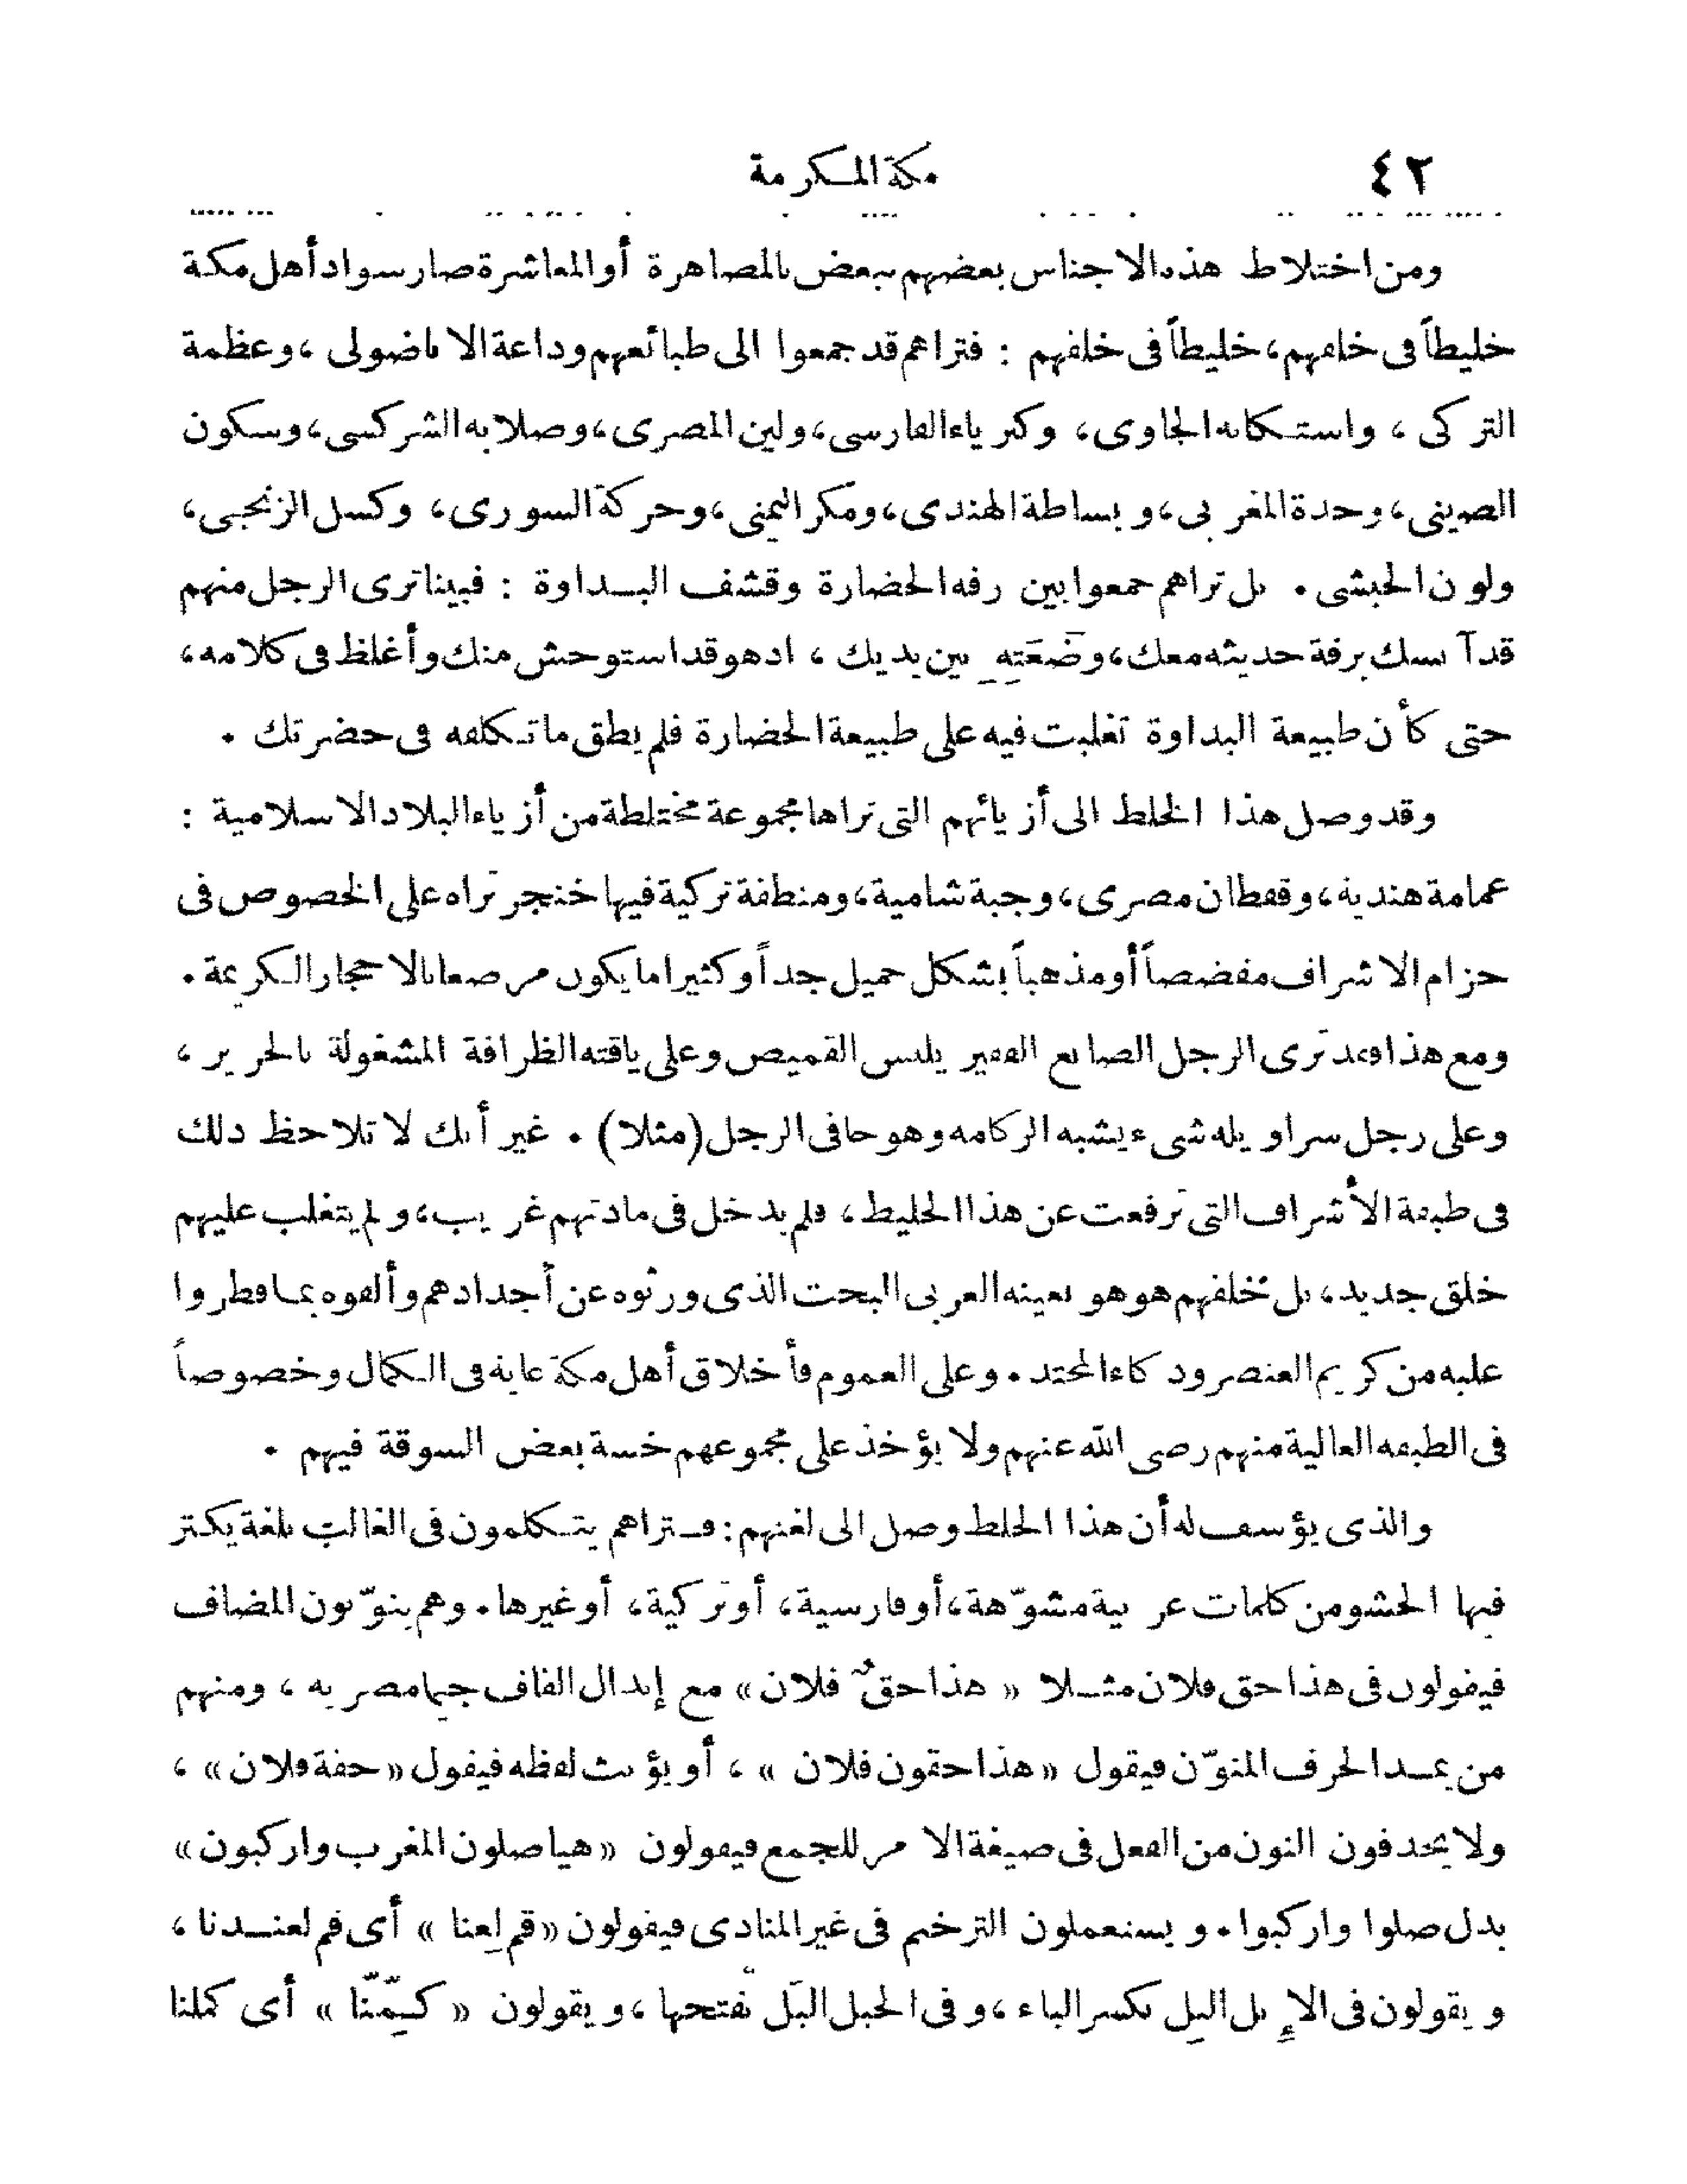 ٤٢
مكة المكرمة
ومن اختلاط هذه الاجناس بعضهم ببعض بالمصاهرة أو المعاشرة صار سواد أهل مكة
خليطاً فى خلقهم، خليطاً فى خلقهم : فتراهم قد جمعوا الى طبائعهم وداعة الاناضولى ، وعظمة
التركى ، واستكانة الجاوى، وكبرياء الفارسى، ولين المصرى، وصلابة الشركسى، وسكون
الصينى، وحدة المغربى، وبساطة الهندى، ومكر اليمنى، وحركة السورى، وكسل الزنجى،
ولون الحبشى . بل تراهم جمعوا بين رفه الحضارة وقشف البداوة : فبينا ترى الرجل منهم
قد آنسك برقة حديثه معك، وضَعَتِهِ بين يديك ، اذ هو قد استوحش منك وأغلظ فى كلامه،
حتى كأن طبيعة البداوة تغلبت فيه على طبيعة الحضارة فلم يطق ما تكلفه فى حضرتك .
وقد وصل هذا الخلط الى أزيائهم التى تراها مجموعة مختلطة من أزياء البلاد الاسلامية :
عمامة هندية، وقفطان مصرى، وجبة شامية، ومنطقة تركية فيها خنجر تراه على الخصوص فى
حزام الاشراف مفضضاً أو مذهباً بشكل جميل جداً وكثيرا ما يكون مرصعا بالاحجار الكريمة .
ومع هذا فقد ترى الرجل الصانع الفقير يلبس القميص وعلى ياقته الظرافة المشغولة بالحرير ،
وعلى رجل سراويله شىء يشبه الركامه وهو حافى الرجل (مثلا) . غير أنك لا تلاحظ ذلك
فى طبقة الأشراف التى ترفعت عن هذا الخليط ، فلم يدخل فى مادتهم غريب، ولم يتغلب عليهم
خلق جديد ، بل خُلقهم هو هو بعينه العربى البحت الذى ورثوه عن أجدادهم وألفوه بما فطروا
عليه من كريم العنصر وذكاء المحتد . وعلى العموم فأخلاق أهل مكة غاية فى الكمال وخصوصاً
فى الطبقة العالية منهم رضى الله عنهم ولا يؤخذ على مجموعهم خسة بعض السوقة فيهم .
والذى يؤسف له أن هذا الخلط وصل الى لغتهم : فتراهم يتكلمون فى الغالب بلغة يكثر
فيها الحشو من كلمات عربية مشوّهة، أو فارسية، أو تركية، أو غيرها. وهم ينوّنون المضاف
فيقولون فى هذا حق فلان مثلا « هذا حقٌ فلان» مع إبدال القاف جيما مصرية ، ومنهم
من يمد الحرف المنوّن فيقول « هذا حقون فلان » ، أو يؤنث لفظه فيقول « حقة فلان» ،
ولا يحذفون النون من الفعل فى صيغة الامر للجمع فيقولون « هيا صلون المغرب واركبون»
بدل صلوا واركبوا. ويستعملون الترخيم فى غير المنادى فيقولون « قم لِعنا » أى قم لعندنا ،
ويقولون فى الإبل البِل بكسر الباء ، وفى الحبل البَل بفتحها ، ويقولون « كِيَّمنّا » أى كملنا